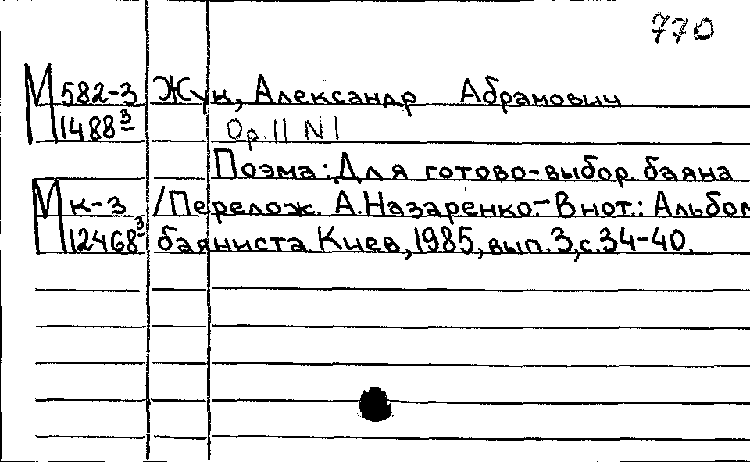 770
М 582-3 Жук, Александр Абрамович
1488³ Ор. 11 N 1
Поэма: Для готово-выбор. баяна
М к-3 /Перелож. А. Назаренко.- В нот.: Альбом
12468³ баяниста. Киев, 1985, вып. 3, с. 34-40.